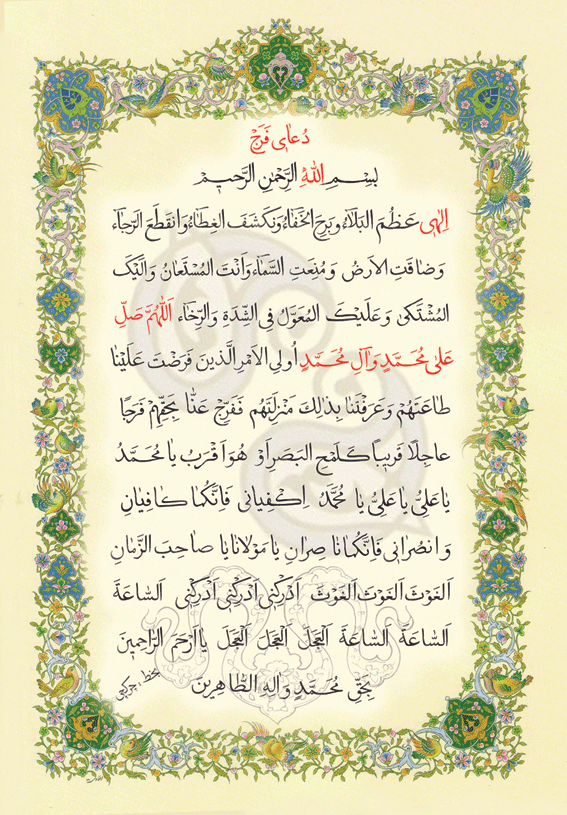 دُعای فَرَج
بِسْمِ اللهِ الرَّحْمٰنِ الرَّحیمِ
اِلٰهی عَظُمَ البَلاٰءُ وَبَرِحَ الخَفٰاءُ وَنکَشَفَ الغِطٰاءُ وَانْقَطَعَ الرَّجٰاء
وَضٰاقَتِ الاَرضُ وَمُنِعَتِ السَّمٰاء وَاَنْتَ المُسْتَعٰانُ وَالَیْکَ
المُشْتَکیٰ وَعَلَیْکَ المُعَوَّلُ فِی الشِّدَةِ وَالرِّخٰاء اَللّٰهُمَّ صَلِّ
عَلیٰ مُحَمَّدٍ وَآلِ مُحَمَّدٍ اُولِی الاَمْرِ الَّذینَ فَرَضْتَ عَلَیْنٰا
طٰاعَتَهُمْ وَعَرَفْتَنٰا بِذٰلِکَ مَنْزِلَتَهُم فَفَرِّجْ عَنّٰا بِحَقِّهِمْ فَرَجًا
عاجِلًا قَریباً کَلَمْحِ البَصَرِ اَوْ هُوَ اَقْرَبُ یٰا مُحَمَّدُ
یٰا عَلِیُّ یٰا عَلِیُّ یٰا مُحَمَّدُ اِکْفِیٰانی فَاِنَّکُمٰا کٰافِیٰانِ
وَانْصُرٰانی فَاِنَّکُمٰا نٰاصِرٰانِ یٰا مَوْلٰانٰا یٰا صٰاحِبَ الزَّمٰانِ
اَلغَوْثَ اَلغَوْثَ اَلغَوْثَ اَدْرِکْنِی اَدْرِکْنِی اَدْرِکْنِی اَلسّٰاعَةَ
اَلسّٰاعَةَ اَلسّٰاعَةَ اَلْعَجَلَ اَلْعَجَلَ اَلْعَجَلَ یٰا اَرْحَمَ الرّٰاحِمینَ
بِحَقِّ مُحَمَّدٍ وَآلِهِ الطّٰاهِرینَ